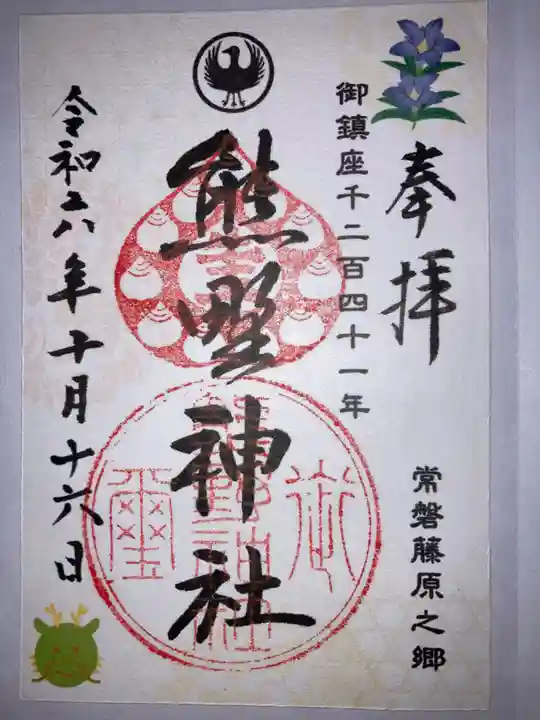 奉拝
常磐藤原之郷
御鎮座千二百四十一年
熊野神社
令和六年十月十六日